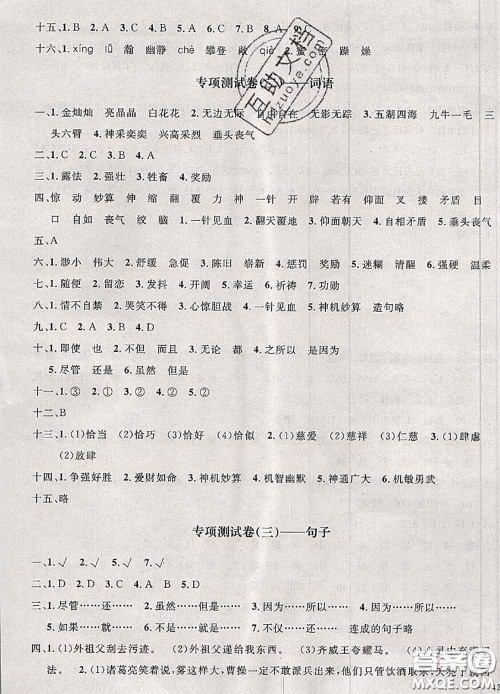 十五、1.A 2.B 3.A 4.C 5.D 6.C 7.B 8.A 9.
十六、1.xíng lǜ 瀚 幽静 chè 攀登 敞 qiào 2.蜜 密 躁 燥
专项测试卷 词语
一、1.金灿灿 亮晶晶 白花花 2.无边无际 自由自在 无影无踪 3.五湖四海 九牛一毛 三
头六臂 4.神采奕奕 兴高采烈 垂头丧气
二、1.C 2.C 3.B 4.A
三、1.露怯 2.强壮 3.牲畜 4.奖励
四、惊 动 妙算 伸 缩 翻 覆 力 神 一针 开 辟 若 仰面 叉 搂 矛盾 目
口 自如 丧气 绞 脑 1.一针见血 2.翻天覆地 3.仰面朝天 4.自相矛盾 5.垂头丧气
五、A
六、1.渺小 伟大 2.舒缓 急促 3.陈旧 崭新 4.惩罚 奖励 5.迷糊 清醒 6.强硬 温柔
七、1.随便 2.留恋 3.奖励 4.幸运 5.祈祷 6.功劳
八、1.情不自禁 2.哭笑不得 3.心惊胆战 4.一针见血 5.神机妙算 造句略
九、1.C 2.A 3.B
十、1.即使 也 2.不但 而且 3.无论 都 4.之所以 是因为
5.尽管 还是
十一、1.③ 2.① 3.② 4.② 5.①
十二、B
十三、1.(1)恰当 (2)恰巧 (3)恰好 2.(1)慈爱 (2)慈祥 (3)仁慈 3.(1)肆虐
(2)放肆
十四、1.争强好胜 2.爱财如命 3.神机妙算 4.机智幽默 5.神通广大 6.机敏勇武
十五、略
专项测试卷(三)——句子
一、1.√ 2.√ 5.√ 7.√
二、1.D 2.D 3.A 4.D
三、1.尽管……还…… 2.虽然……但是…… 3.不是……而是…… 4.之所以……是因为……
5.如果……就…… 6.尽管……还是…… 造成的后果略
四、1.(1)外祖父刮去污迹。 (2)外祖父递给我东西。 (3)齐威王夸耀马。
2.(1)诸葛亮笑着说,雾这样大,曹操一定不敢派兵出来,他们只管饮酒取乐,天亮了就回